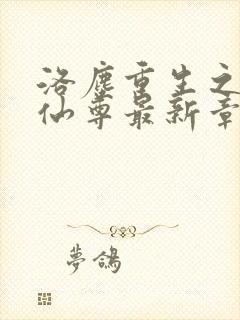 洛塵重生之
仙尊最新章
夢鴿